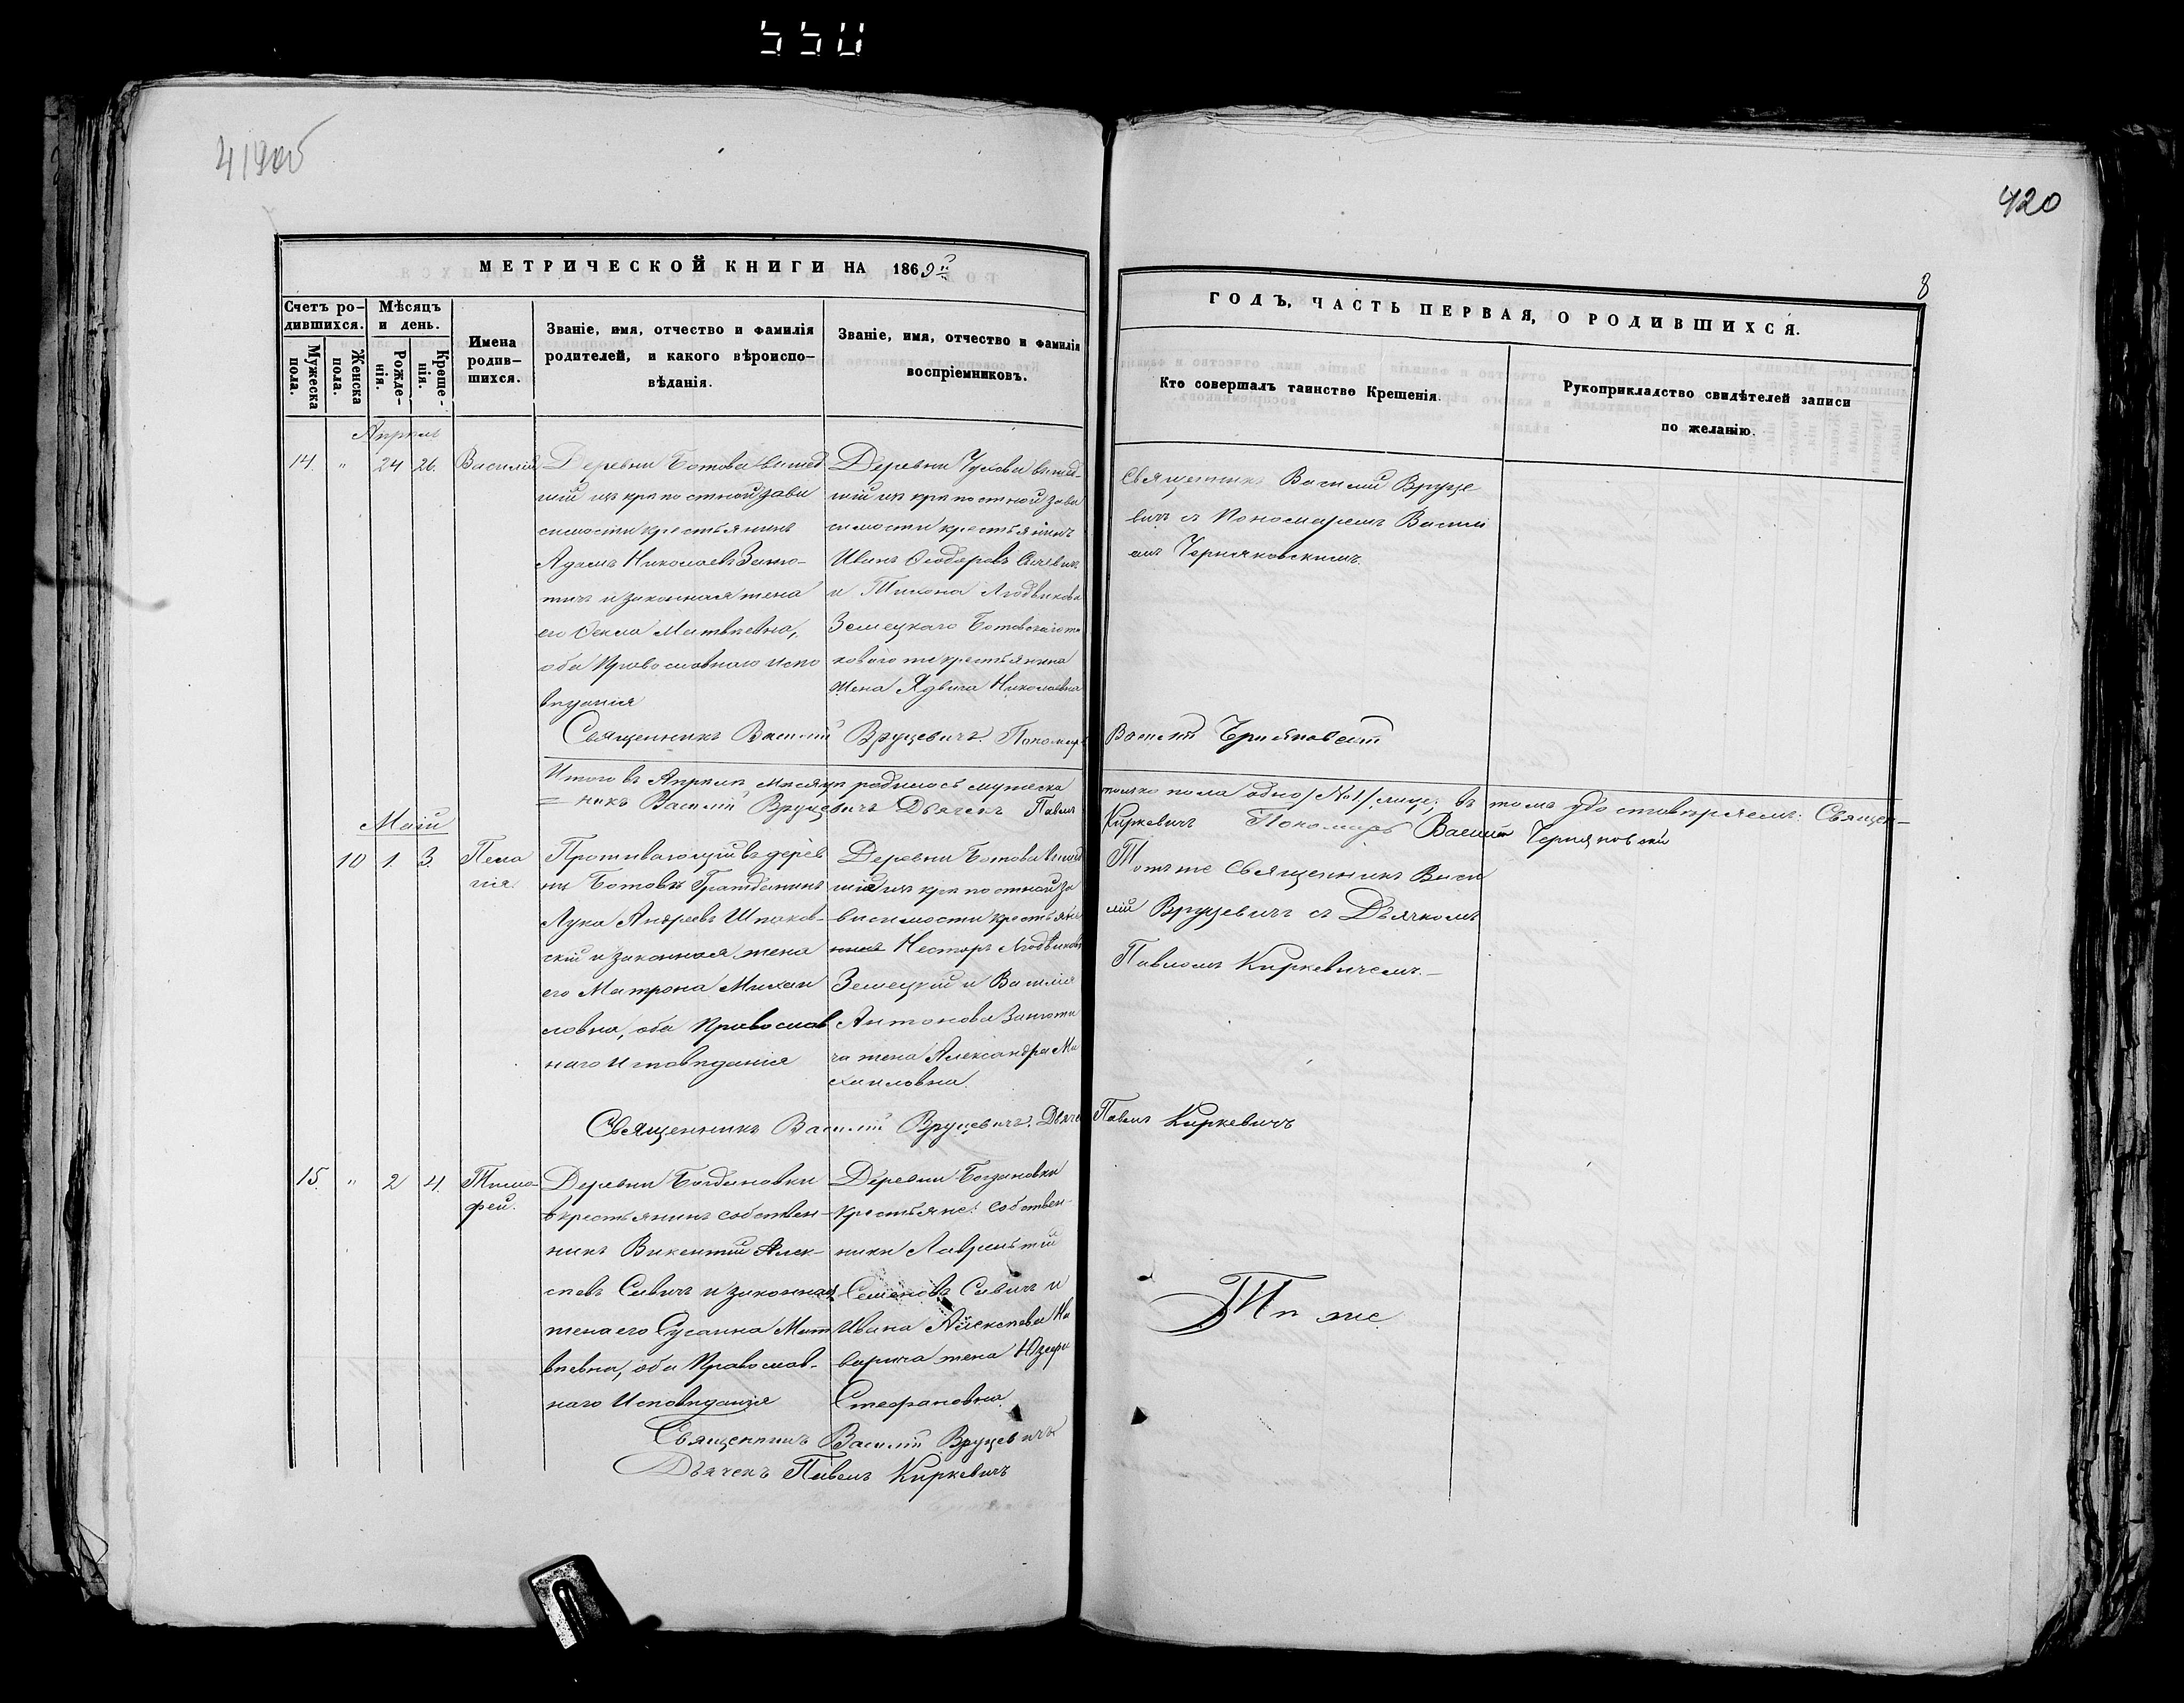 550
419об
420
8
МЕТРИЧЕСКОЙ КНИГИ НА 1869й
ГОДЪ, ЧАСТЬ ПЕРВАЯ, О РОДИВШИХСЯ.
Счетъ ро-
дившихся.
Мужеска
пола.
Женска
пола.
Мѣсяцъ
и день.
Рожде-
нія.
Креще-
нія.
Имена
родив-
шихся.
Званіе, имя, отчество и фамилія
родителей, и какого вѣроиспо-
вѣданія.
Званіе, имя, отчество и фамилія
воспріемниковъ.
Кто совершалъ таинство Крещенія.
Рукоприкладство свидѣтелей записи
по желанію.
Апрель
14. " 24 26. Василій
Деревни Ботова вышед
шій изъ крѣпостной зави
симости крестьянинъ
Адамъ Николаевъ
и законная жена
его Фекла Матвѣевна,
оба Православнаго испо
вѣданія
Деревни Чухова вышед-
шій изъ крѣпостной зави
симости крестьянинъ
Иванъ Феодоровъ
и Тихона Людвикова
Земецкаго Ботовскаго та
коваго же крестьянина
жена Ядвига Николаевна
Священникъ Василій Вруце
вичъ съ Пономаремъ Васили
емъ Черняковскимъ.
Священникъ Василій Вруцевичъ. Пономарь Василій Черняковскій
Итого въ Апрелѣ месяцѣ родилось мужеска только пола одно /№1/ лице; въ томъ удостовѣряемъ: Священ-
= никъ Василій Вруцевичъ Дьячекъ Павелъ Киркевичъ Пономарь Василій Черняковскій
Маій
10 1 3. Пела
гія.
Проживающій въ дерев
ни Ботовѣ Гражданинъ
Лука Андреевъ Шпаков-
скій и законная жена
его Матрона Михаи
ловна, оба Православ
наго Исповѣданія
Деревни Ботова вышед
шій изъ крѣпостной за
висимости крестьян
нинъ Несторъ Людвиковъ
Земецкій и Василія
Антонова
ча жена Александра Ми
хаиловна.
Тотъ же Священникъ Васи
лій Вруцевичъ съ Дьячкомъ
Павломъ Киркевичемъ.
Священникъ Василій Вруцевичъ. Дьячек Павелъ Киркевичъ
15. " 2 4. Тимо-
фей.
Деревни Богдановки
крестьянинъ собствен-
никъ Викентій Алек-
сѣевъ Савичъ и законная
жена его Сусанна Мат
вѣевна, оба Православ-
наго Исповѣданія
Деревни Богдановки
крестьяне: собствен-
ники Лаврентій
Семеновъ Савичъ и
Ивана Алексѣева
жена Юзефа
Стефановна.
Тѣ же.
Священникъ Василій Вруцевичъ
Дьячекъ Павелъ Киркевичъ